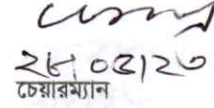 ২৮/০৫/২৩
চেয়ারম্যান